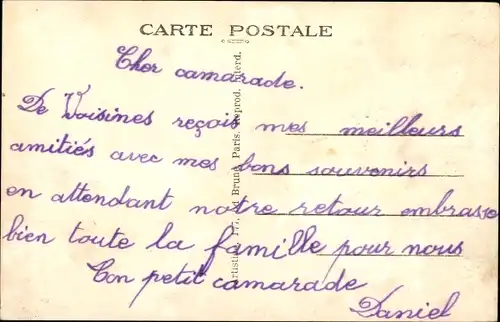 CARTE POSTALE
Cher camarade.
De Voisines reçois mes meilleurs
amitiés avec mes bons souvenirs
en attendant notre retour embrasse
bien toute la famille pour nous
Ton petit camarade
Daniel
Brune, Paris. Reprod. Interd.